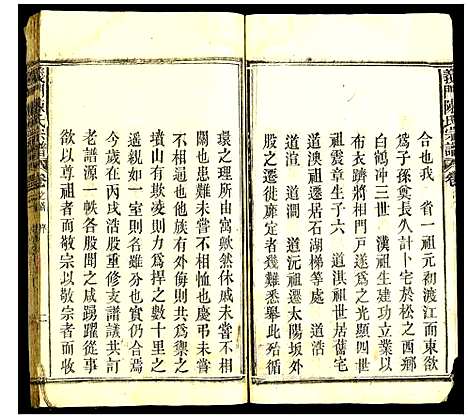 義門陳氏宗譜 卷
合也我 省一祖元初渡江而東欲
爲子孫奠長久計卜宅於松之西鄉
白鶴冲三世 漢祖生建功立業以
布衣躋將相門戸遂爲之光顯四世
祖震章生子六 道淇祖世居舊宅
道澳祖遷居石湖梯等處 道淅
道澗 道沅祖遷太陽坂外
股之從遷靡定者難悉舉此殆循
環之理所由寓歟然休戚未嘗不相
關也患難未嘗不相恤也慶弔未嘗
不相通也他族有外侮則共爲禦之
墳山有欺凌則力爲捍之數十里之
近儼如一室則各分亦必實仍合焉
今歲在丙戌浩股重修支譜議共訂
老譜源一帙各股聞之咸踴躍從事
欲以尊祖者而敬宗以敬宗者而收
義門陳氏宗譜 卷